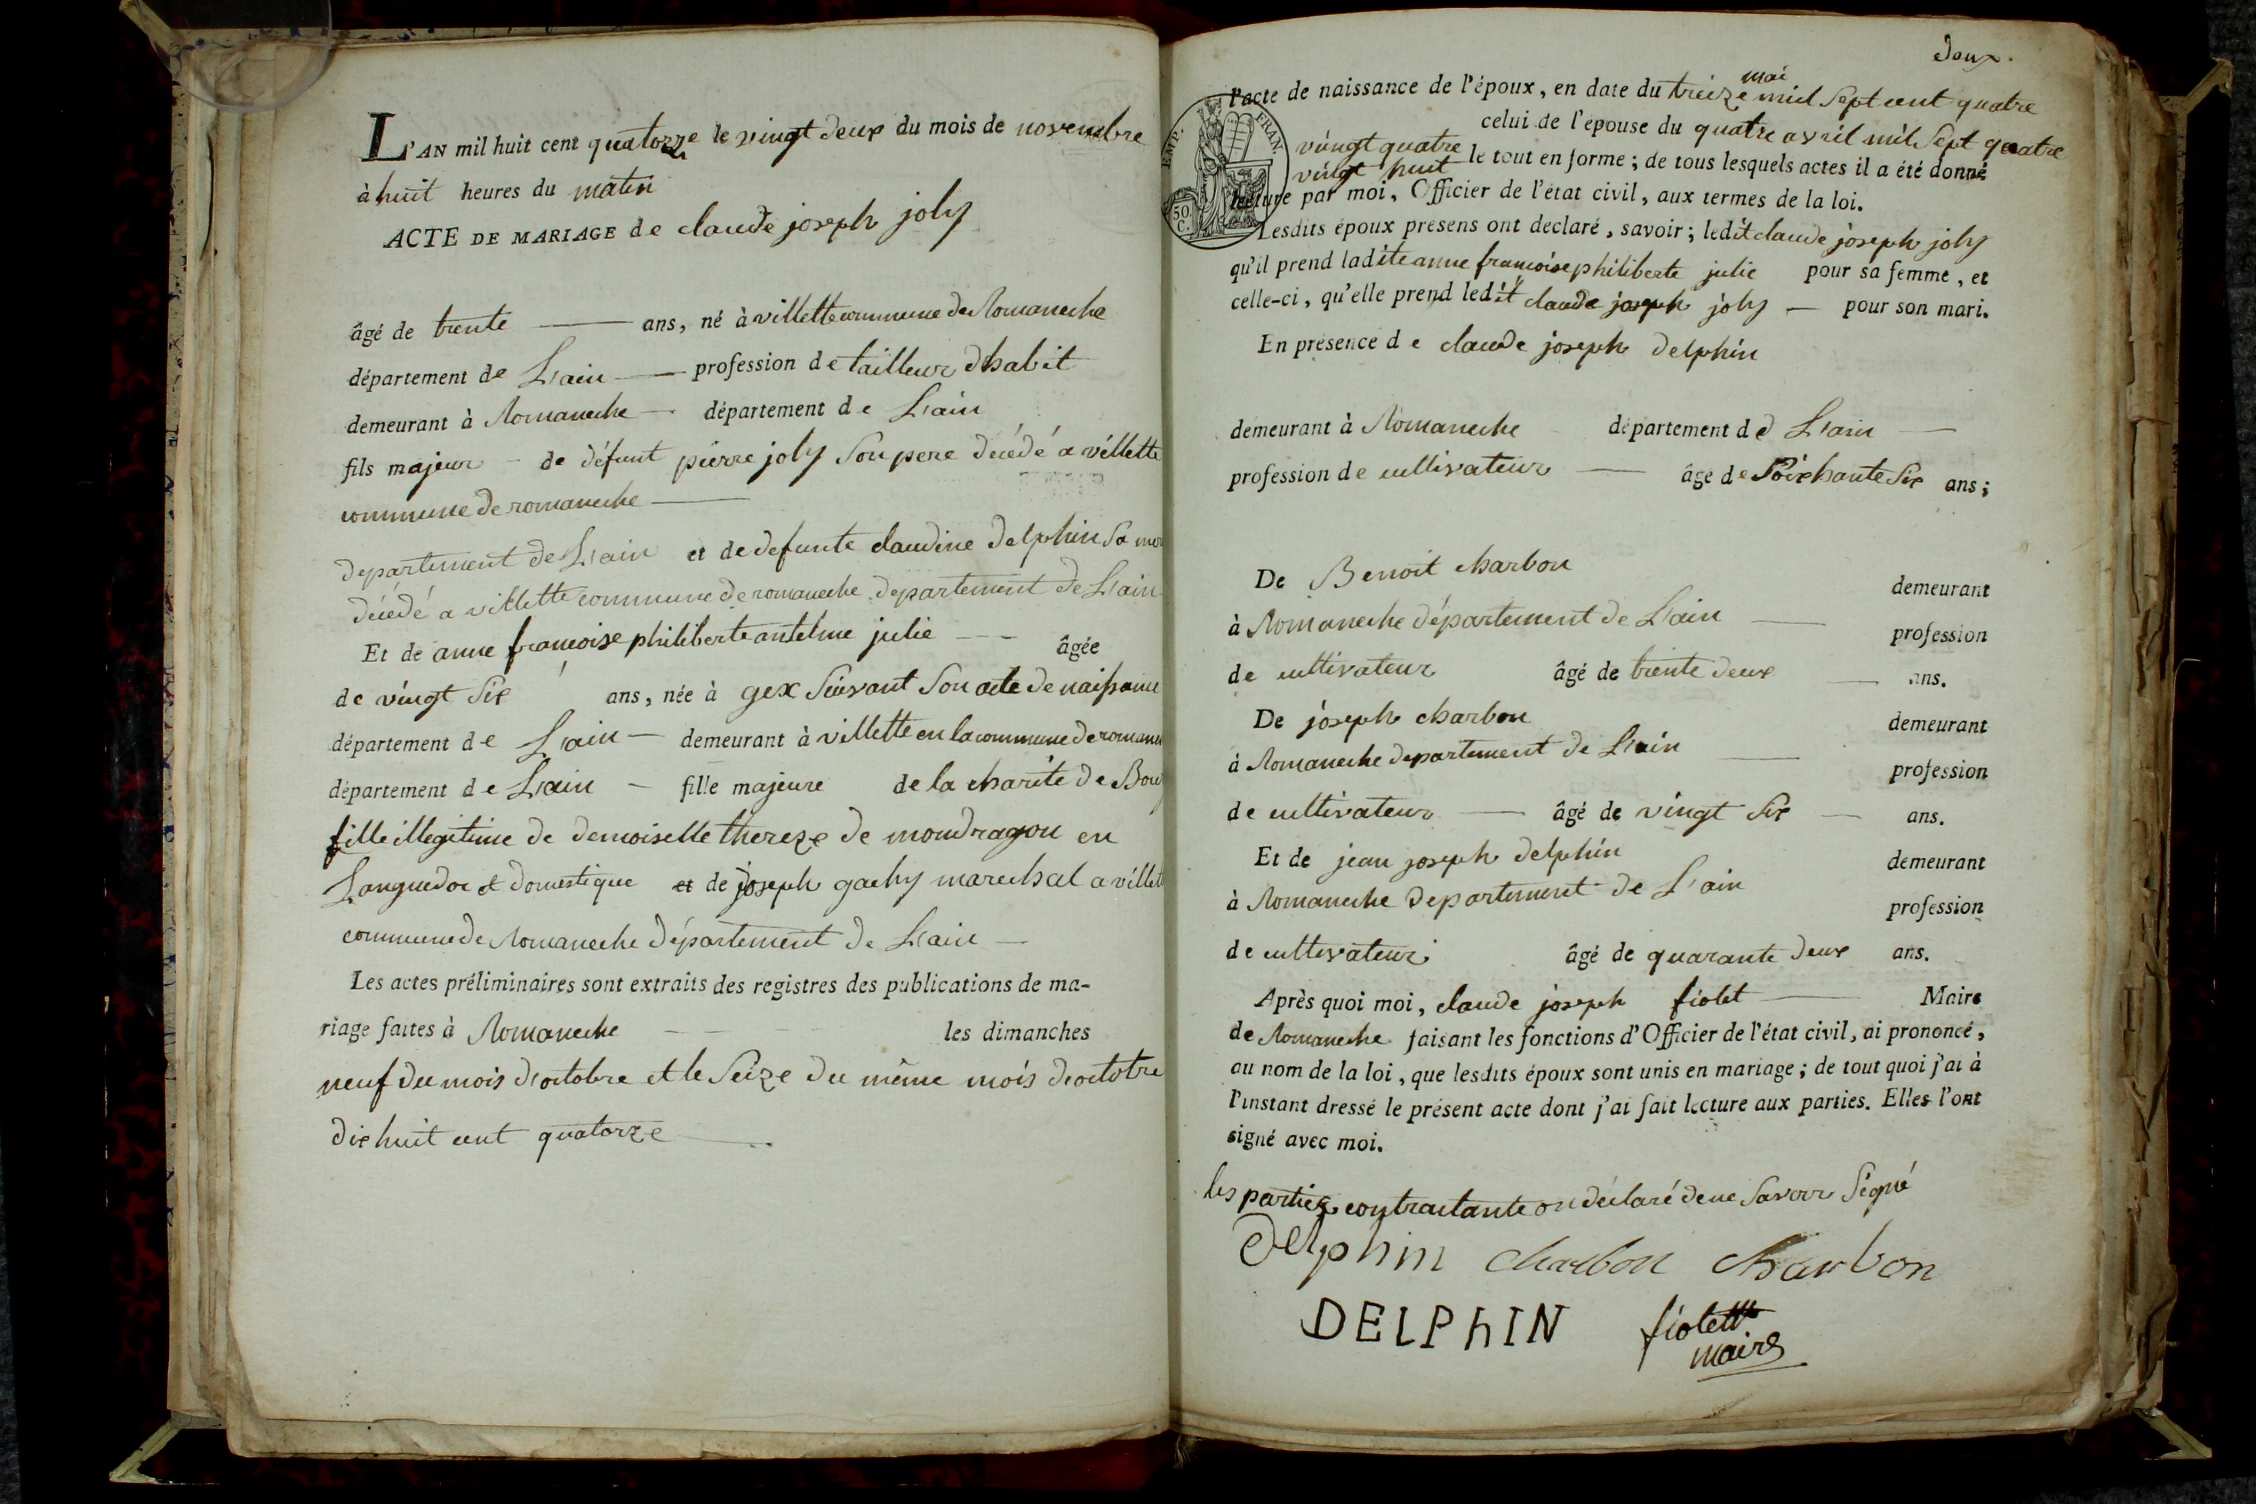 L'AN mil huit cent quatorze le vingt deux du mois de novembre
à huit heures du matin
ACTE DE MARIAGE de claude joseph joly
âgé de trente ans, né à villette commune de Romaneche
département de L'ain profession de tailleur dhabit
demeurant à Romaneche département de L'ain
fils majeur de défunt pierre joly Son pere décédé a villette
commune de romaneche
departement de L'ain et de defunte claudine Delphin Sa
décédé a villette commune de romaneche departement de L'ain
Et de anne francoise philiberte antelme julie âgée
de vingt Six ans, née à gex Suivant Son acte de naissance
département de L'ain demeurant à villette en la commune de
département de L'ain fille majeure de la charité de
fille illegitime de demoiselle thereze de mondragon en
Languedoc et domestique et de joseph gachy marechal a
commune de Romaneche département de L'ain
Les actes préliminaires sont extraits des registres des publications de ma-
riage faites à Romaneche les dimanches
neuf du mois d'octobre et le Seize du même mois d'octobre
dix huit cent quatorze
deux.
l'acte de naissance de l'époux, en date du treize mai mil Sept cent quatre
vingt quatre celui de l'épouse du quatre avril mil Sept quatre
vingt huit le tout en forme; de tous lesquels actes il a été donné
lecture par moi, Officier de l'état civil, aux termes de la loi.
EMP. FRAN.
50 C.
Lesdits époux présens ont déclaré, savoir; ledit claude joseph joly
qu'il prend ladite anne francoise philiberte julie pour sa femme, et
celle-ci, qu'elle prend ledit claude joseph joly pour son mari.
En présence de claude joseph delphin
demeurant à Romaneche département de L'ain
profession de cultivateur âgé de Soixhante Six ans;
De Benoit charbon demeurant
à Romaneche département de L'ain profession
de cultivateur âgé de trente deux ans.
De joseph charbon demeurant
à Romaneche departement de L'ain profession
de cultivateur âgé de vingt Six ans.
Et de jean joseph delphin demeurant
à Romaneche departement de L'ain profession
de cultivateur âgé de quarante deux ans.
Après quoi moi, claude joseph fiolet Maire
de Romaneche faisant les fonctions d'Officier de l'état civil, ai prononcé,
au nom de la loi, que lesdits époux sont unis en mariage; de tout quoi j'ai à
l'instant dressé le présent acte dont j'ai fait lecture aux parties. Elles l'ont
signé avec moi.
les parties contractante on déclaré de ne Savoir Signé
Delphin charbon charbon
DELPhIN fiolet
maire